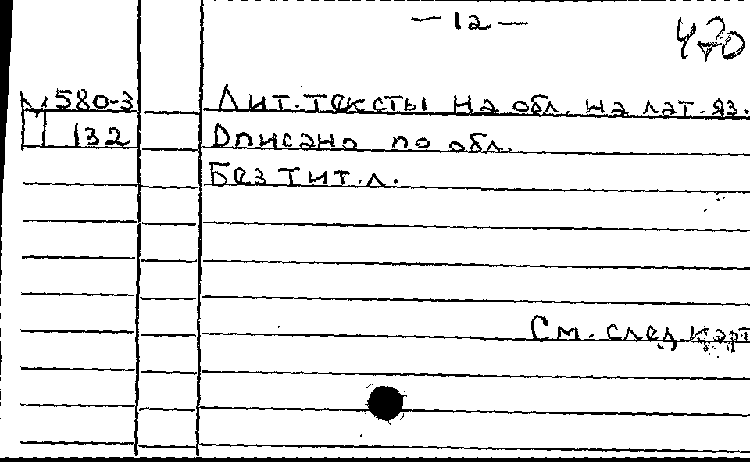 — 12 —
470
М 580-3 Лит. тексты на обл. на лат. яз.
132 Описано по обл.
Без тит. л.
См. след. карт